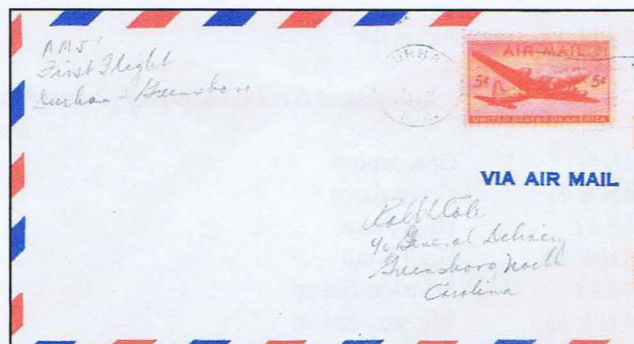 AM51
First Flight
Durham - Greensboro
AIR MAIL
5¢ 5¢
UNITED STATES OF AMERICA
VIA AIR MAIL
c/o General Delivery
Greensboro North
Carolina